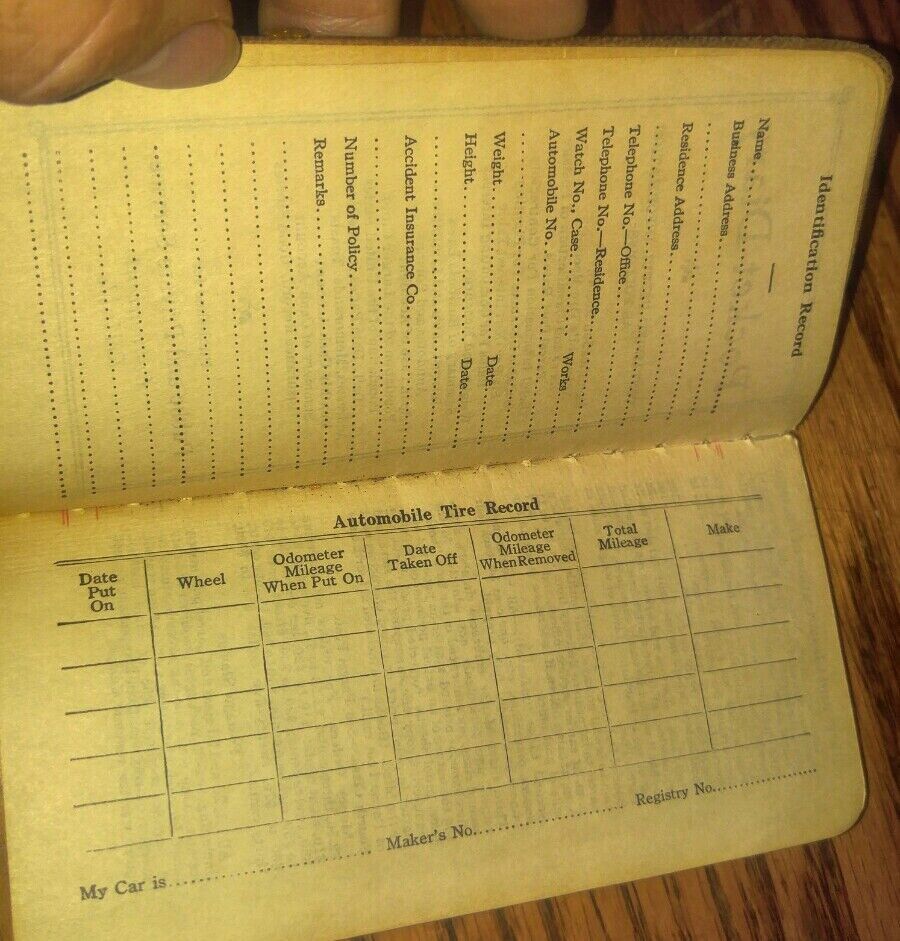 Identification Record
Name
Business Address
Residence Address
Telephone No.—Office
Telephone No.—Residence
Watch No., Case Works
Automobile No.
Weight Date
Height Date
Accident Insurance Co.
Number of Policy
Remarks
Automobile Tire Record
Date Put On
Wheel
Odometer Mileage When Put On
Date Taken Off
Odometer Mileage When Removed
Total Mileage
Make
My Car is Maker's No. Registry No.